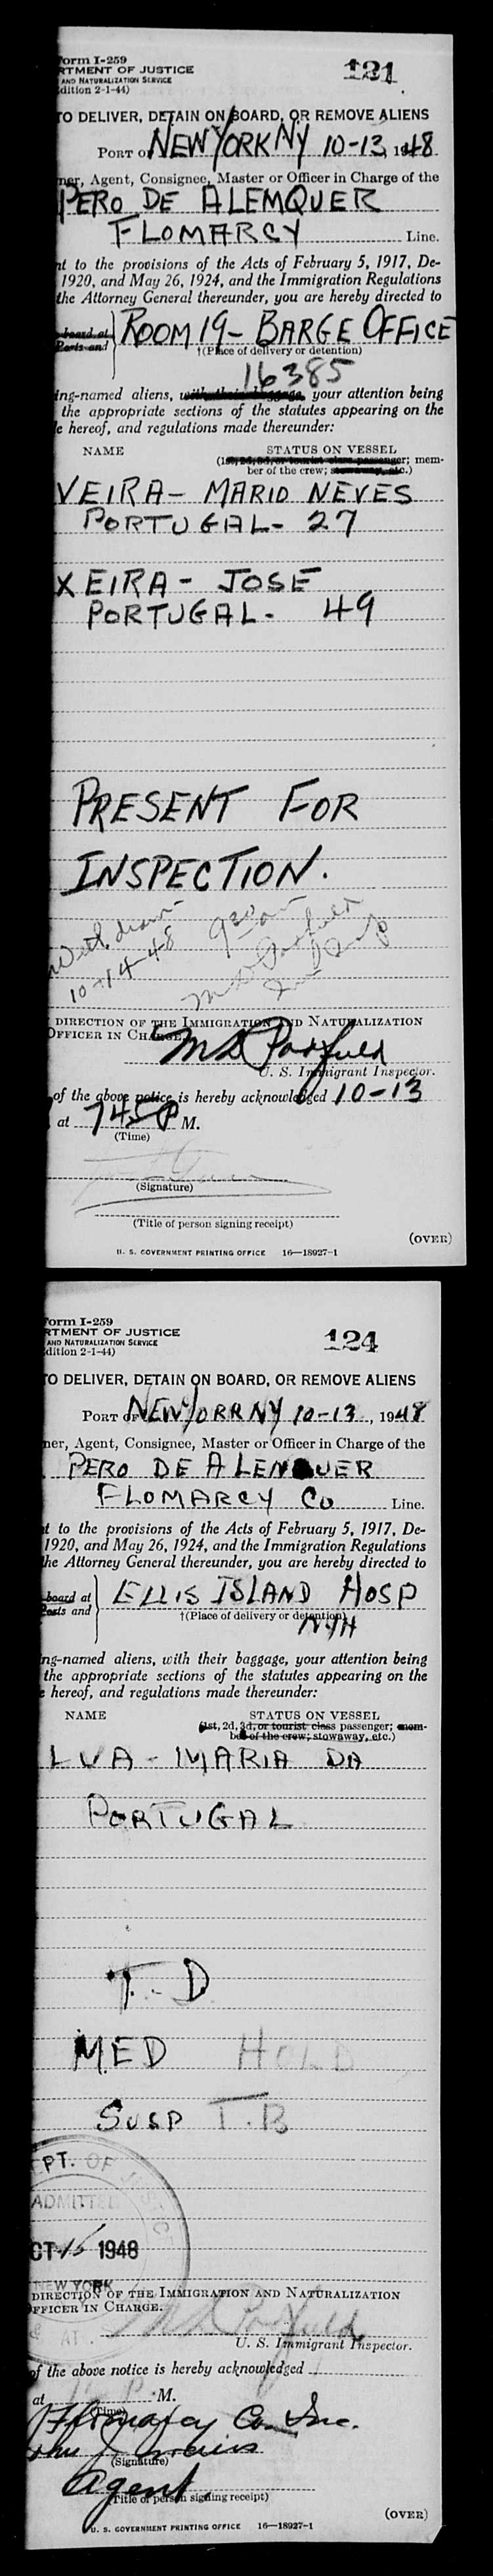 orm I-259
RTMENT OF JUSTICE
AND NATURALIZATION SERVICE
dition 2-1-44)
121
TO DELIVER, DETAIN ON BOARD, OR REMOVE ALIENS
PORT OF NEW YORK NY 10-13, 1948
ner, Agent, Consignee, Master or Officer in Charge of the
PERO DE ALEMQUER
FLOMARCY Line.
nt to the provisions of the Acts of February 5, 1917, De-
1920, and May 26, 1924, and the Immigration Regulations
the Attorney General thereunder, you are hereby directed to
board at
Ports and
ROOM 19- BARGE OFFICE
†(Place of delivery or detention)
16385
ing-named aliens, with their baggage, your attention being
the appropriate sections of the statutes appearing on the
e hereof, and regulations made thereunder:
NAME STATUS ON VESSEL
(1st, 2d, 3d, or tourist class passenger; mem-
ber of the crew; stowaway, etc.)
VEIRA- MARIO NEVES
PORTUGAL- 27
XEIRA- JOSE
PORTUGAL- 49
PRESENT FOR
INSPECTION.
Withdrawn
10-14-48
DIRECTION OF THE IMMIGRATION AND NATURALIZATION
OFFICER IN CHARGE.
U. S. Immigrant Inspector.
of the above notice is hereby acknowledged 10-13
at 745 P M.
(Time)
(Signature)
(Title of person signing receipt)
(OVER)
U. S. GOVERNMENT PRINTING OFFICE 16—18927-1
orm I-259
RTMENT OF JUSTICE
AND NATURALIZATION SERVICE
dition 2-1-44)
124
TO DELIVER, DETAIN ON BOARD, OR REMOVE ALIENS
PORT OF NEW YORK NY 10-13, 1948
ner, Agent, Consignee, Master or Officer in Charge of the
PERO DE ALENQUER
FLOMARCY Co Line.
t to the provisions of the Acts of February 5, 1917, De-
1920, and May 26, 1924, and the Immigration Regulations
he Attorney General thereunder, you are hereby directed to
board at
Posts and
ELLIS ISLAND HOSP
†(Place of delivery or detention)
ng-named aliens, with their baggage, your attention being
the appropriate sections of the statutes appearing on the
e hereof, and regulations made thereunder:
NAME STATUS ON VESSEL
(1st, 2d, 3d, or tourist class passenger; mem-
ber of the crew; stowaway, etc.)
LVA - MARIA DA
PORTUGAL
T.D
MED HOLD
SUSP T.B
EPT. OF JUSTICE
ADMITTED
CT 15 1948
NEW YORK
DIRECTION OF THE IMMIGRATION AND NATURALIZATION
OFFICER IN CHARGE.
U. S. Immigrant Inspector.
of the above notice is hereby acknowledged
at M.
(Time)
Flomarcy Co. Inc.
(Signature)
Agent
(Title of person signing receipt)
(OVER)
U. S. GOVERNMENT PRINTING OFFICE 16—18927-1